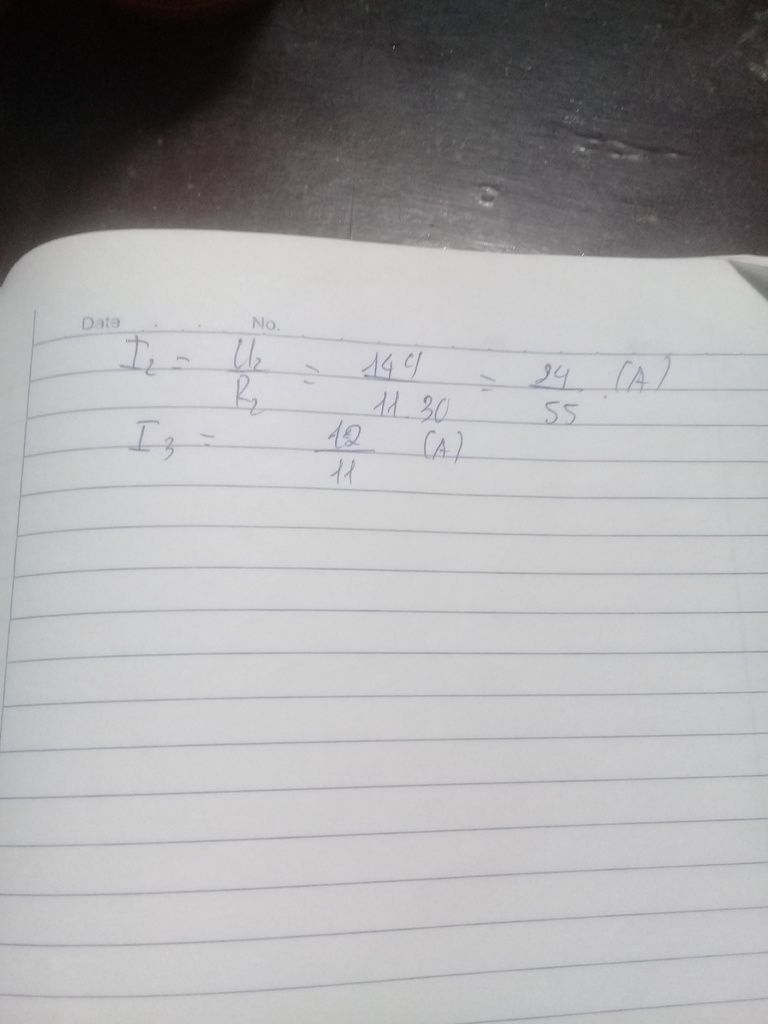 Date No.
I₂ = U₂/R₂ = 144/11.30 = 24/55 (A)
I₃ = 12/11 (A)